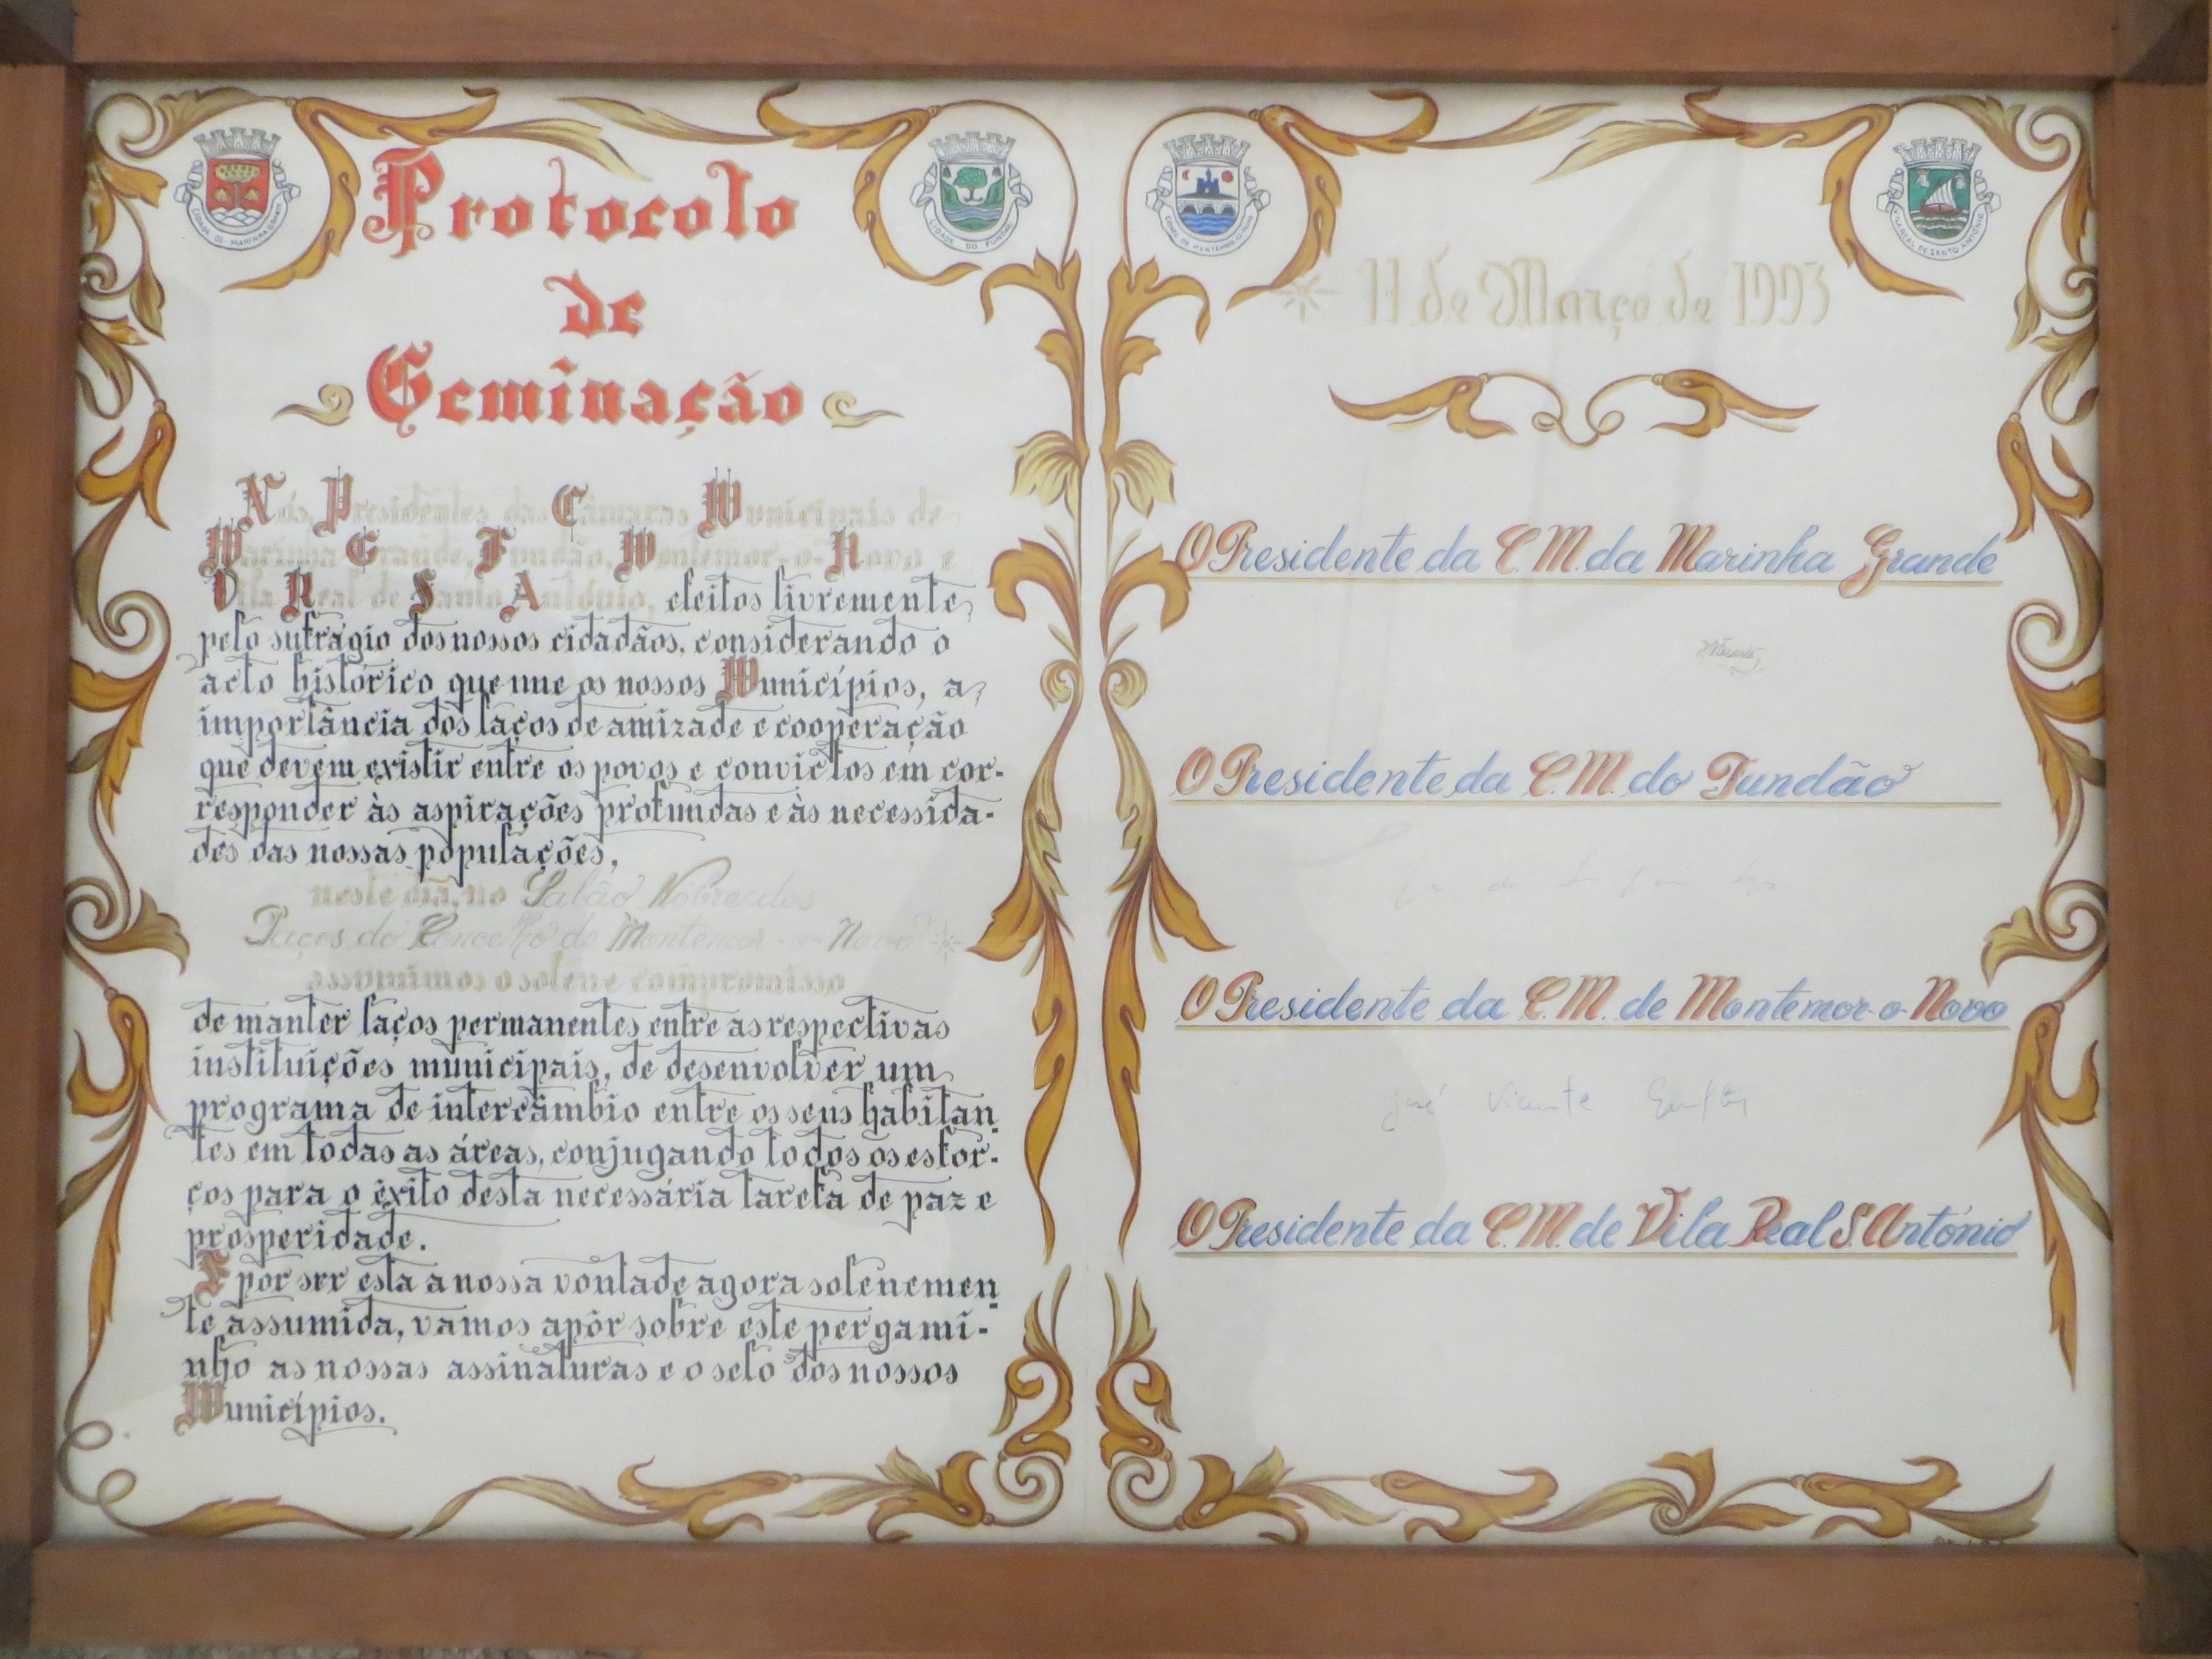 CIDADE DE MARINHA GRANDE
CIDADE DO FUNDÃO
VILA REAL DE SANTO ANTÓNIO
Protocolo
de
Geminação
Nós, Presidentes das Câmaras Municipais de
Marinha Grande, Fundão, Montemor-o-Novo e
Vila Real de Santo António, eleitos livremente
pelo sufrágio dos nossos cidadãos, considerando o
acto histórico que une os nossos Municípios, a
importância dos laços de amizade e cooperação
que devem existir entre os povos e convictos em cor-
responder às aspirações profundas e às necessida-
des das nossas populações,
neste dia, no Salão Nobre dos
Paços do Concelho de Montemor-o-Novo
assumimos o solene compromisso
de manter laços permanentes entre as respectivas
instituições municipais, de desenvolver um
programa de intercâmbio entre os seus habitan
tes em todas as áreas, conjugando todos os esfor-
ços para o êxito desta necessária tarefa de paz e
prosperidade.
E por ser esta a nossa vontade agora solenemen
te assumida, vamos apôr sobre este pergami-
nho as nossas assinaturas e o selo dos nossos
Municípios.
11 de Março de 1993
O Presidente da C.M. da Marinha Grande
O Presidente da C.M. do Fundão
O Presidente da C.M. de Montemor-o-Novo
José Vicente
O Presidente da C.M. de Vila Real S. António